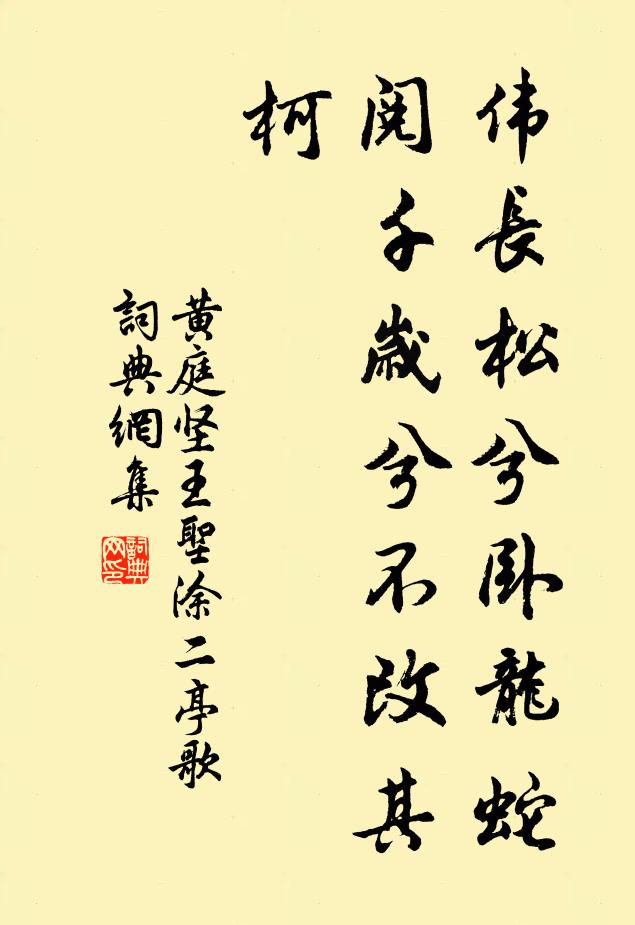 伟長松兮卧龍蛇
阅千歳兮不改其
柯
黄庭坚王聖涂二亭歌
詞典網集
詞典網印